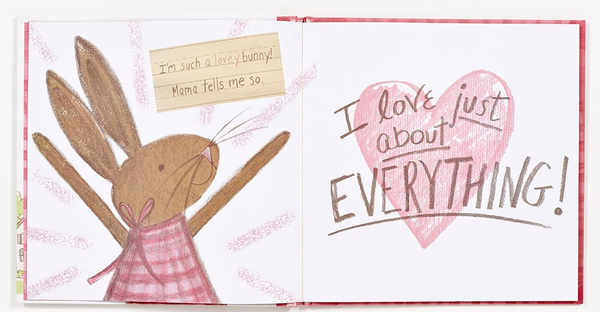 I'm such a lovey bunny!
Mama tells me so.
I love just
about
EVERYTHING!